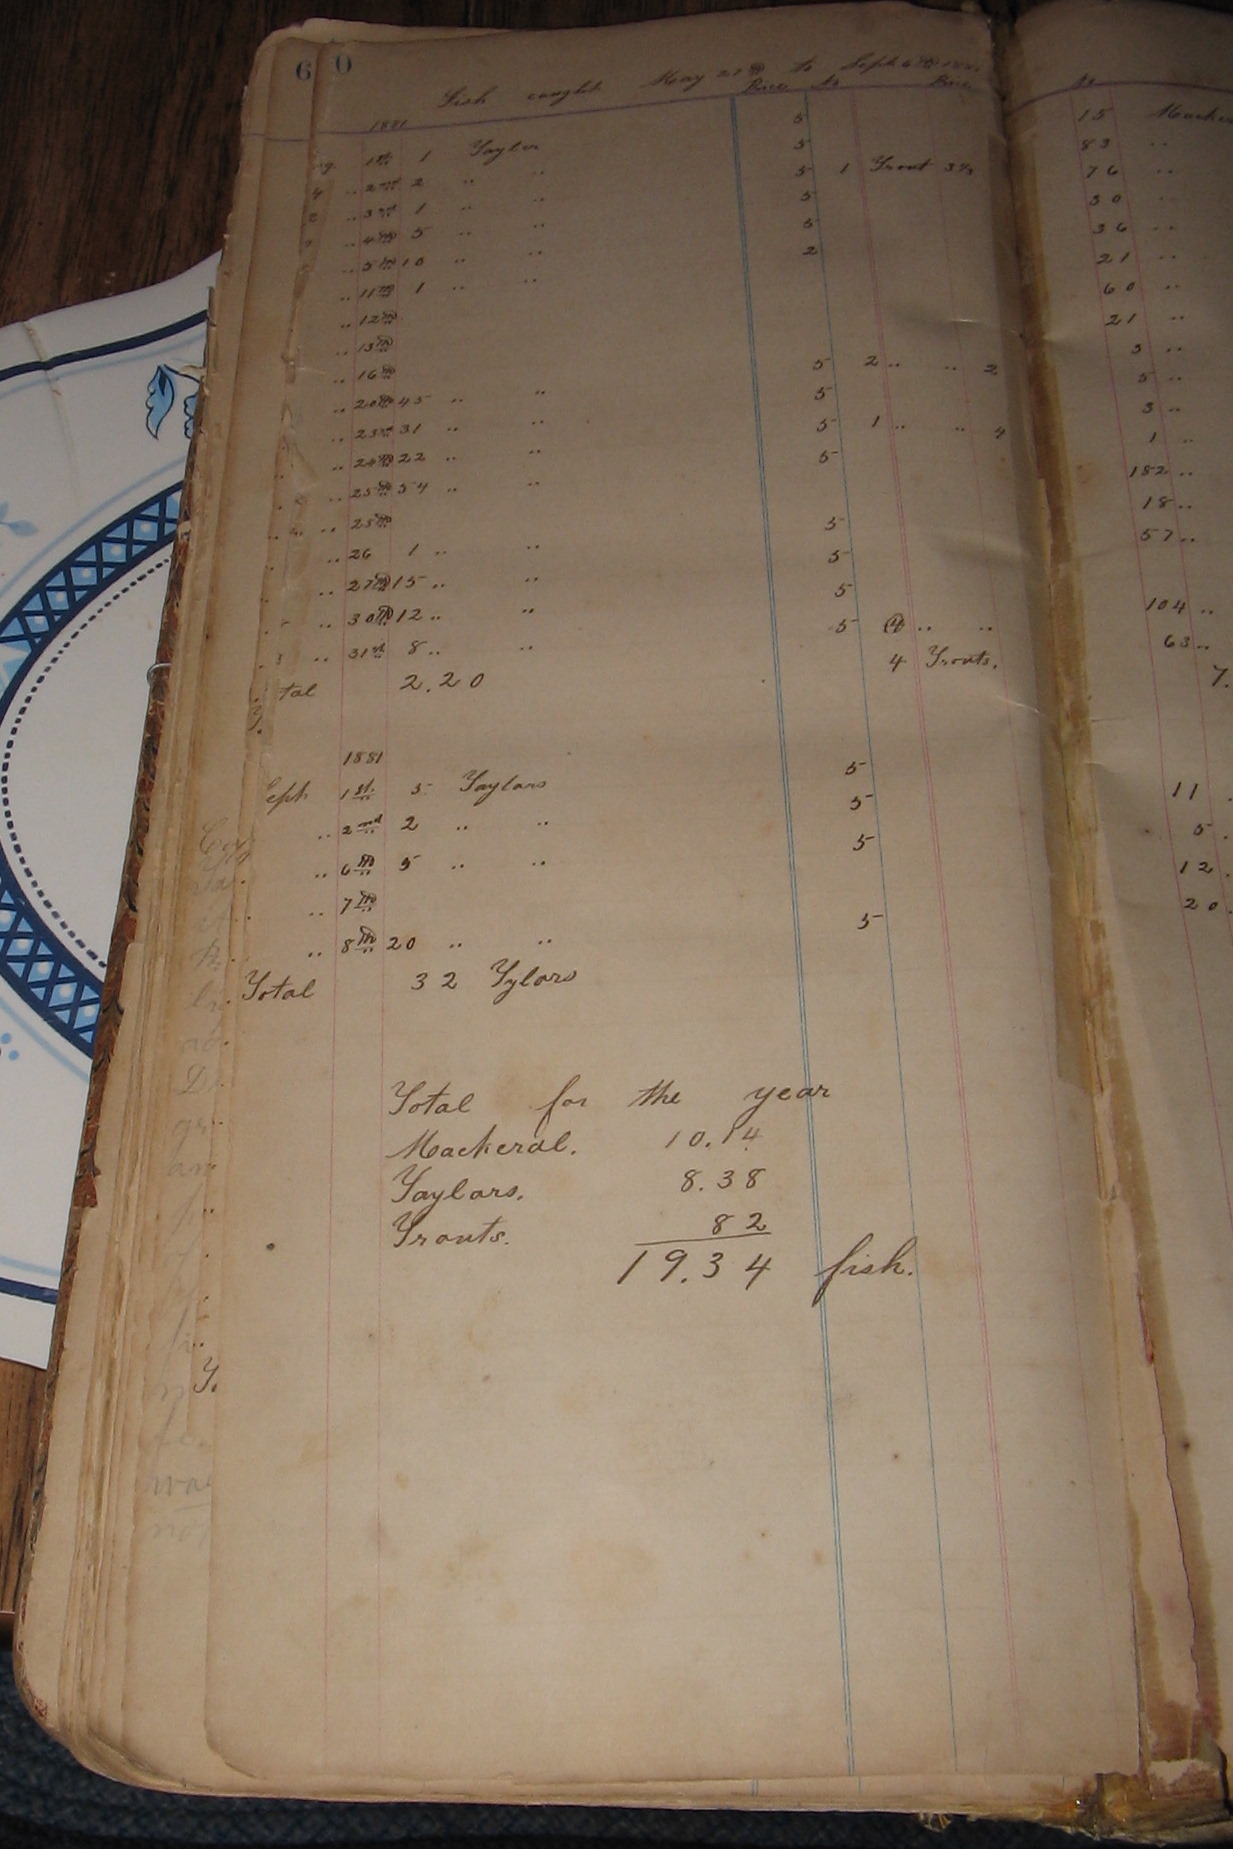 60
Fish caught May 21th to Sept 6th 1881
Price No Price
1881 5
1st 1 Taylor 5
.. 2nd 2 .. .. 5 1 Trout 3½
.. 3rd 1 .. .. 5
.. 4th 5 .. .. 5
.. 5th 10 .. .. 2
.. 11th 1 .. ..
.. 12th
.. 13th
.. 16th 5 2 .. .. 2
.. 20th 45 .. .. 5
.. 23rd 31 .. .. 5 1 .. .. 4
.. 24th 22 .. .. 5
.. 25th 54 .. ..
.. 25th 5
.. 26 1 .. .. 5
.. 27th 15 .. .. 5
.. 30th 12 .. .. 5 4 .. ..
.. 31st 8 .. .. 4 Trouts.
tal 2.20
1881 5
Sept 1st 5 Taylors 5
.. 2nd 2 .. .. 5
.. 6th 5 .. ..
.. 7th 5
.. 8th 20 .. ..
Total 32 Tylors
Total for the year
Mackeral. 10.14
Taylors. 8.38
Trouts. 82
19.34 fish.
No
15 Macke
83 ..
76 ..
30 ..
36 ..
21 ..
60 ..
21 ..
3 ..
5 ..
3 ..
1 ..
182 ..
18 ..
57 ..
104 ..
63 ..
7.
11
5
12
20